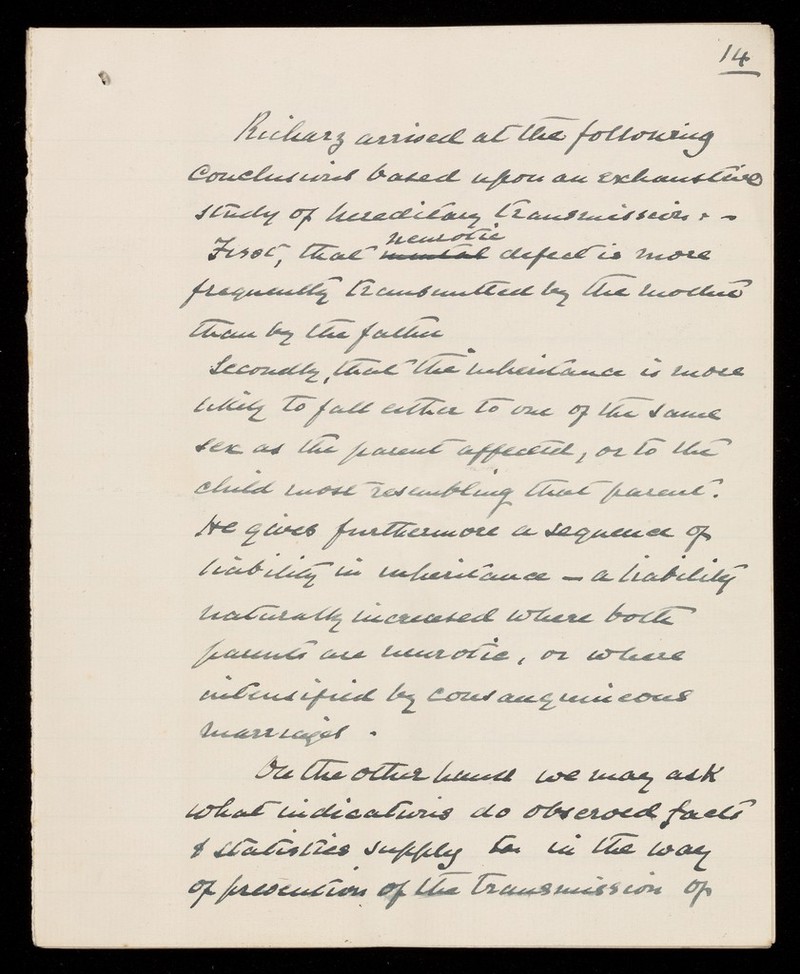 14
Richarz arrived at the following
conclusions based upon an exhaustive
study of hereditary transmission : -
neurotic
First, that mental defect is more
frequently transmitted by the mother
than by the father
Secondly, that the inheritance is more
likely to fall either to one of the same
sex as the parent affected, or to the
child most resembling that parent.
He gives furthermore a sequence of
liability in inheritance — a liability
naturally increased where both
parents are neurotic, or where
intensified by consanguineous
marriages.
On the other hand we may ask
what indications do observed facts
& statistics supply to in the way
of prevention of the transmission of